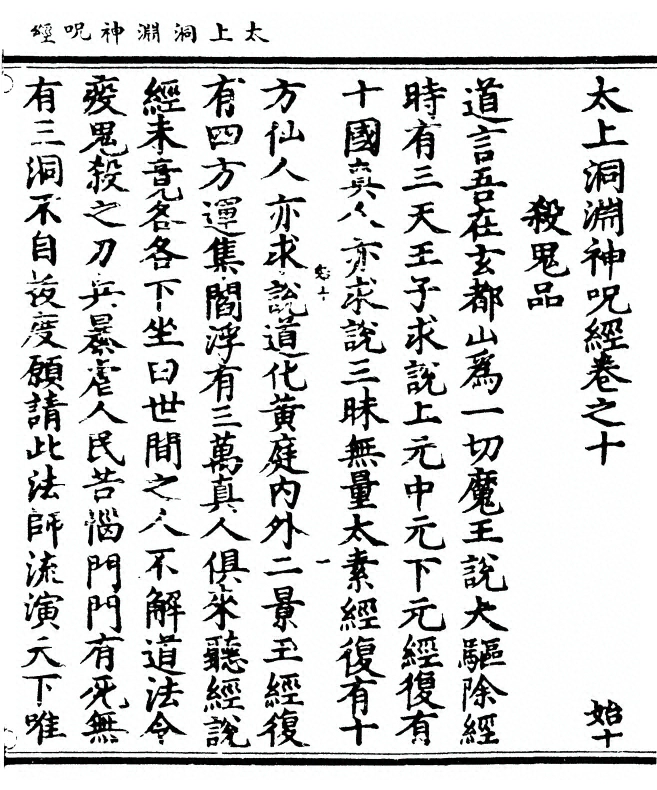 太上洞淵神呪經
太上洞淵神呪經卷之十
始十
殺鬼品
道言吾在玄都山爲一切魔王說大驅除經
時有三天王子求說上元中元下元經復有
十國真人亦求說三昧無量太素經復有十
方仙人亦求說道化黃庭內外二景玉經復
有四方運集閻浮有三萬真人俱來聽經說
經未竟各各下坐曰世間之人不解道法令
疫鬼殺之刀兵暴虐人民苦惱門門有死無
有三洞不自茂度願請此法師流演天下唯
十
一